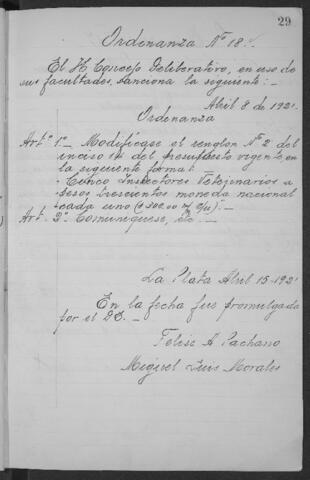 29
Ordenanza Nº 18.
El H. Concejo Deliberativo, en uso de
sus facultades, sanciona la siguiente: —
Abril 8 de 1921.
Ordenanza
Artº 1º— Modifícase el renglon Nº 2 del
inciso 1º del presupuesto vigente, en
la siguiente forma: —
Cinco Inspectores Veterinarios a
pesos trescientos moneda nacional
cada uno ($ 300.00 m/ c/u). —
Artº 2º Comuníquese, etc —
La Plata Abril 15-1921
En la fecha fué promulgada
por el D.E. —
Felix A Pachano
Miguel Luis Morales